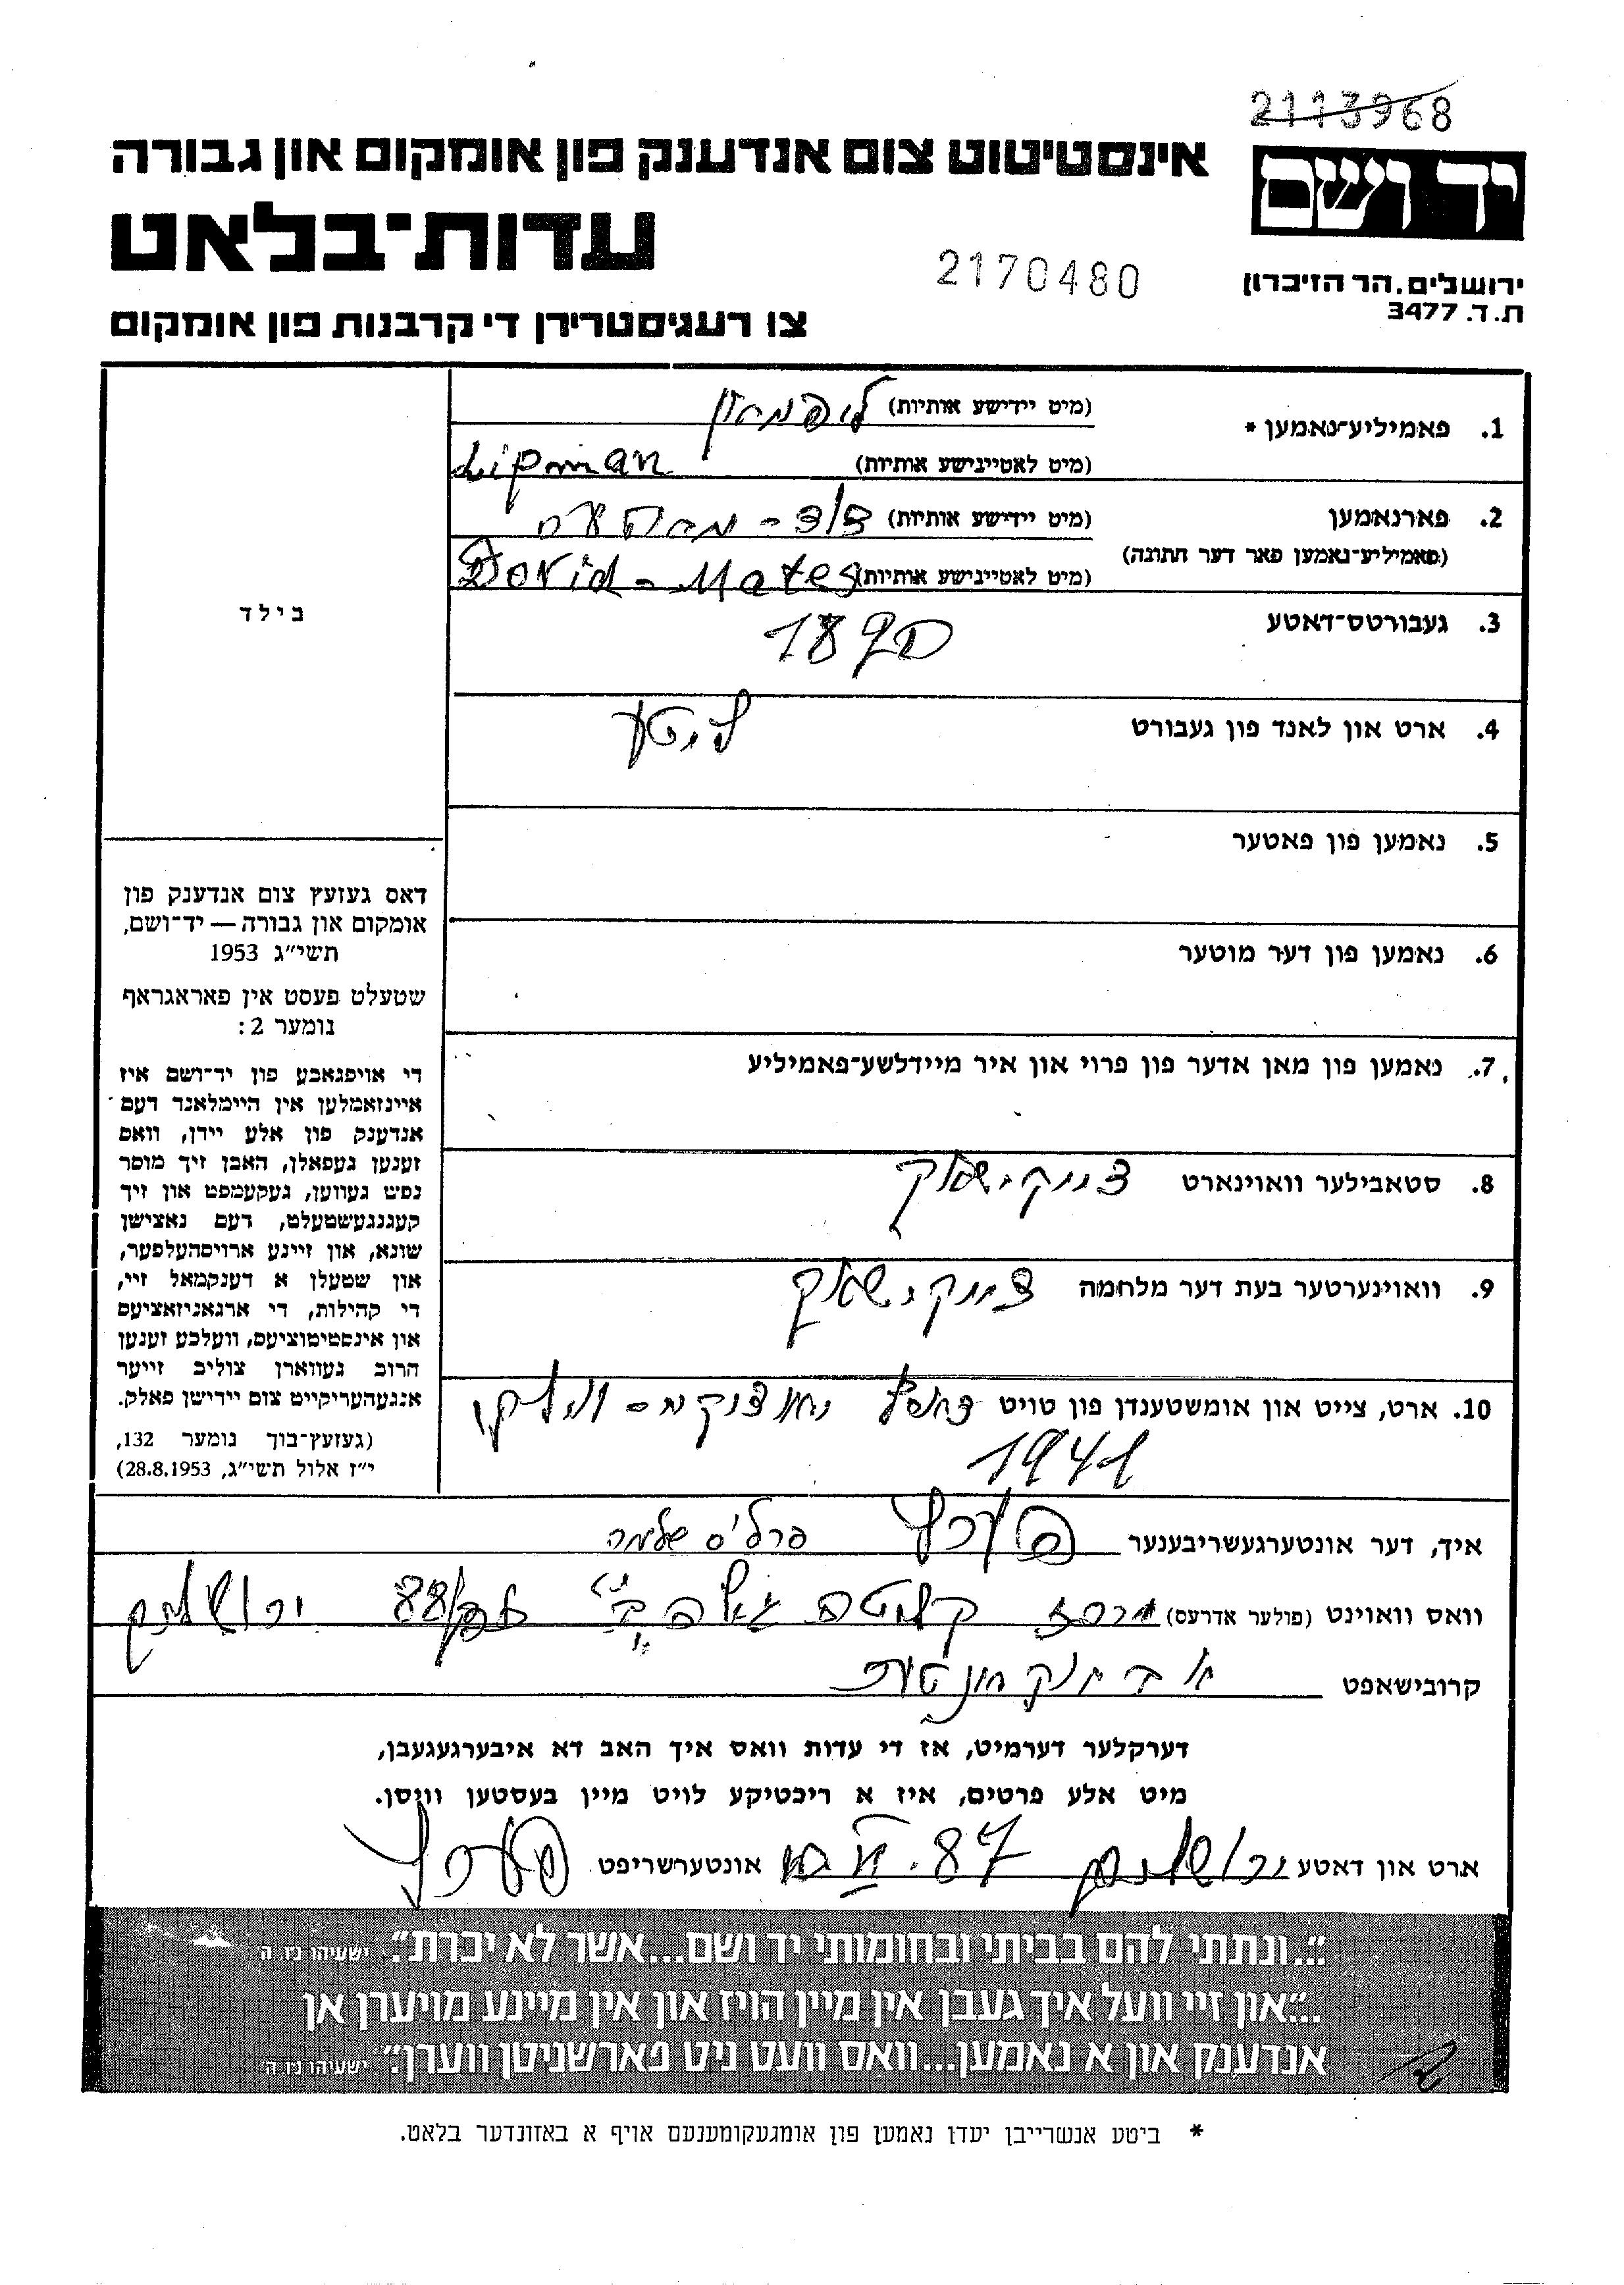 2113968
יד ושם
אינסטיטוט צום אנדענק פון אומקום און גבורה
עדות־בלאט
2170480
ירושלים. הר הזיכרון
ת.ד. 3477
צו רעגיסטרירן די קרבנות פון אומקום
1. פאמיליע־נאמען * (מיט יידישע אותיות) ליפמאן
(מיט לאטיינישע אותיות) Lipman
2. פארנאמען (מיט יידישע אותיות)
(פאמיליע־נאמען פאר דער חתונה) (מיט לאטיינישע אותיות) Dovid - Mates
3. געבורטס־דאטע 1890
4. ארט און לאנד פון געבורט ליטע
5. נאמען פון פאטער
6. נאמען פון דער מוטער
7. נאמען פון מאן אדער פון פרוי און איר מיידלשע־פאמיליע
8. סטאבילער וואוינארט
9. וואוינערטער בעת דער מלחמה
10. ארט, צייט און אומשטענדן פון טויט
1941
בילד
דאס געזעץ צום אנדענק פון
אומקום און גבורה — יד־ושם,
תשי״ג 1953
שטעלט פעסט אין פאראגראף
נומער 2:
די אויפגאבע פון יד־ושם איז
איינזאמלען אין היימלאנד דעם
אנדענק פון אלע יידן, וואס
זענען געפאלן, האבן זיך מוסר
נפש געווען, געקעמפט און זיך
קעגנגעשטעלט, דעם נאצישן
שונא, און זיינע ארויסהעלפער,
און שטעלן א דענקמאל זיי,
די קהילות, די ארגאניזאציעס
און אינסטיטוציעס, וועלכע זענען
הרוב געווארן צוליב זייער
אנגעהעריקייט צום יידישן פאלק.
(געזעץ־בוך נומער 132,
י״ז אלול תשי״ג, 28.8.1953)
איך, דער אונטערגעשריבענער פערלס פרלס שלמה
וואס וואוינט (פולער אדרעס) מרכז קליטה 88 ירושלים
קרובישאפט א באקאנטער
דערקלער דערמיט, אז די עדות וואס איך האב דא איבערגעגעבן,
מיט אלע פרטים, איז א ריכטיקע לויט מיין בעסטען וויסן.
ארט און דאטע ירושלים 87 אונטערשריפט
"...ונתתי להם בביתי ובחומותי יד ושם...אשר לא יכרת". ישעיהו נ״ו ה׳
"...און זיי וועל איך געבן אין מיין הויז און אין מיינע מויערן אן
אנדענק און א נאמען...וואס וועט ניט פארשניטן ווערן". ישעיהו נ״ו ה׳
* ביטע אנשרייבן יעדן נאמען פון אומגעקומענעם אויף א באזונדער בלאט.